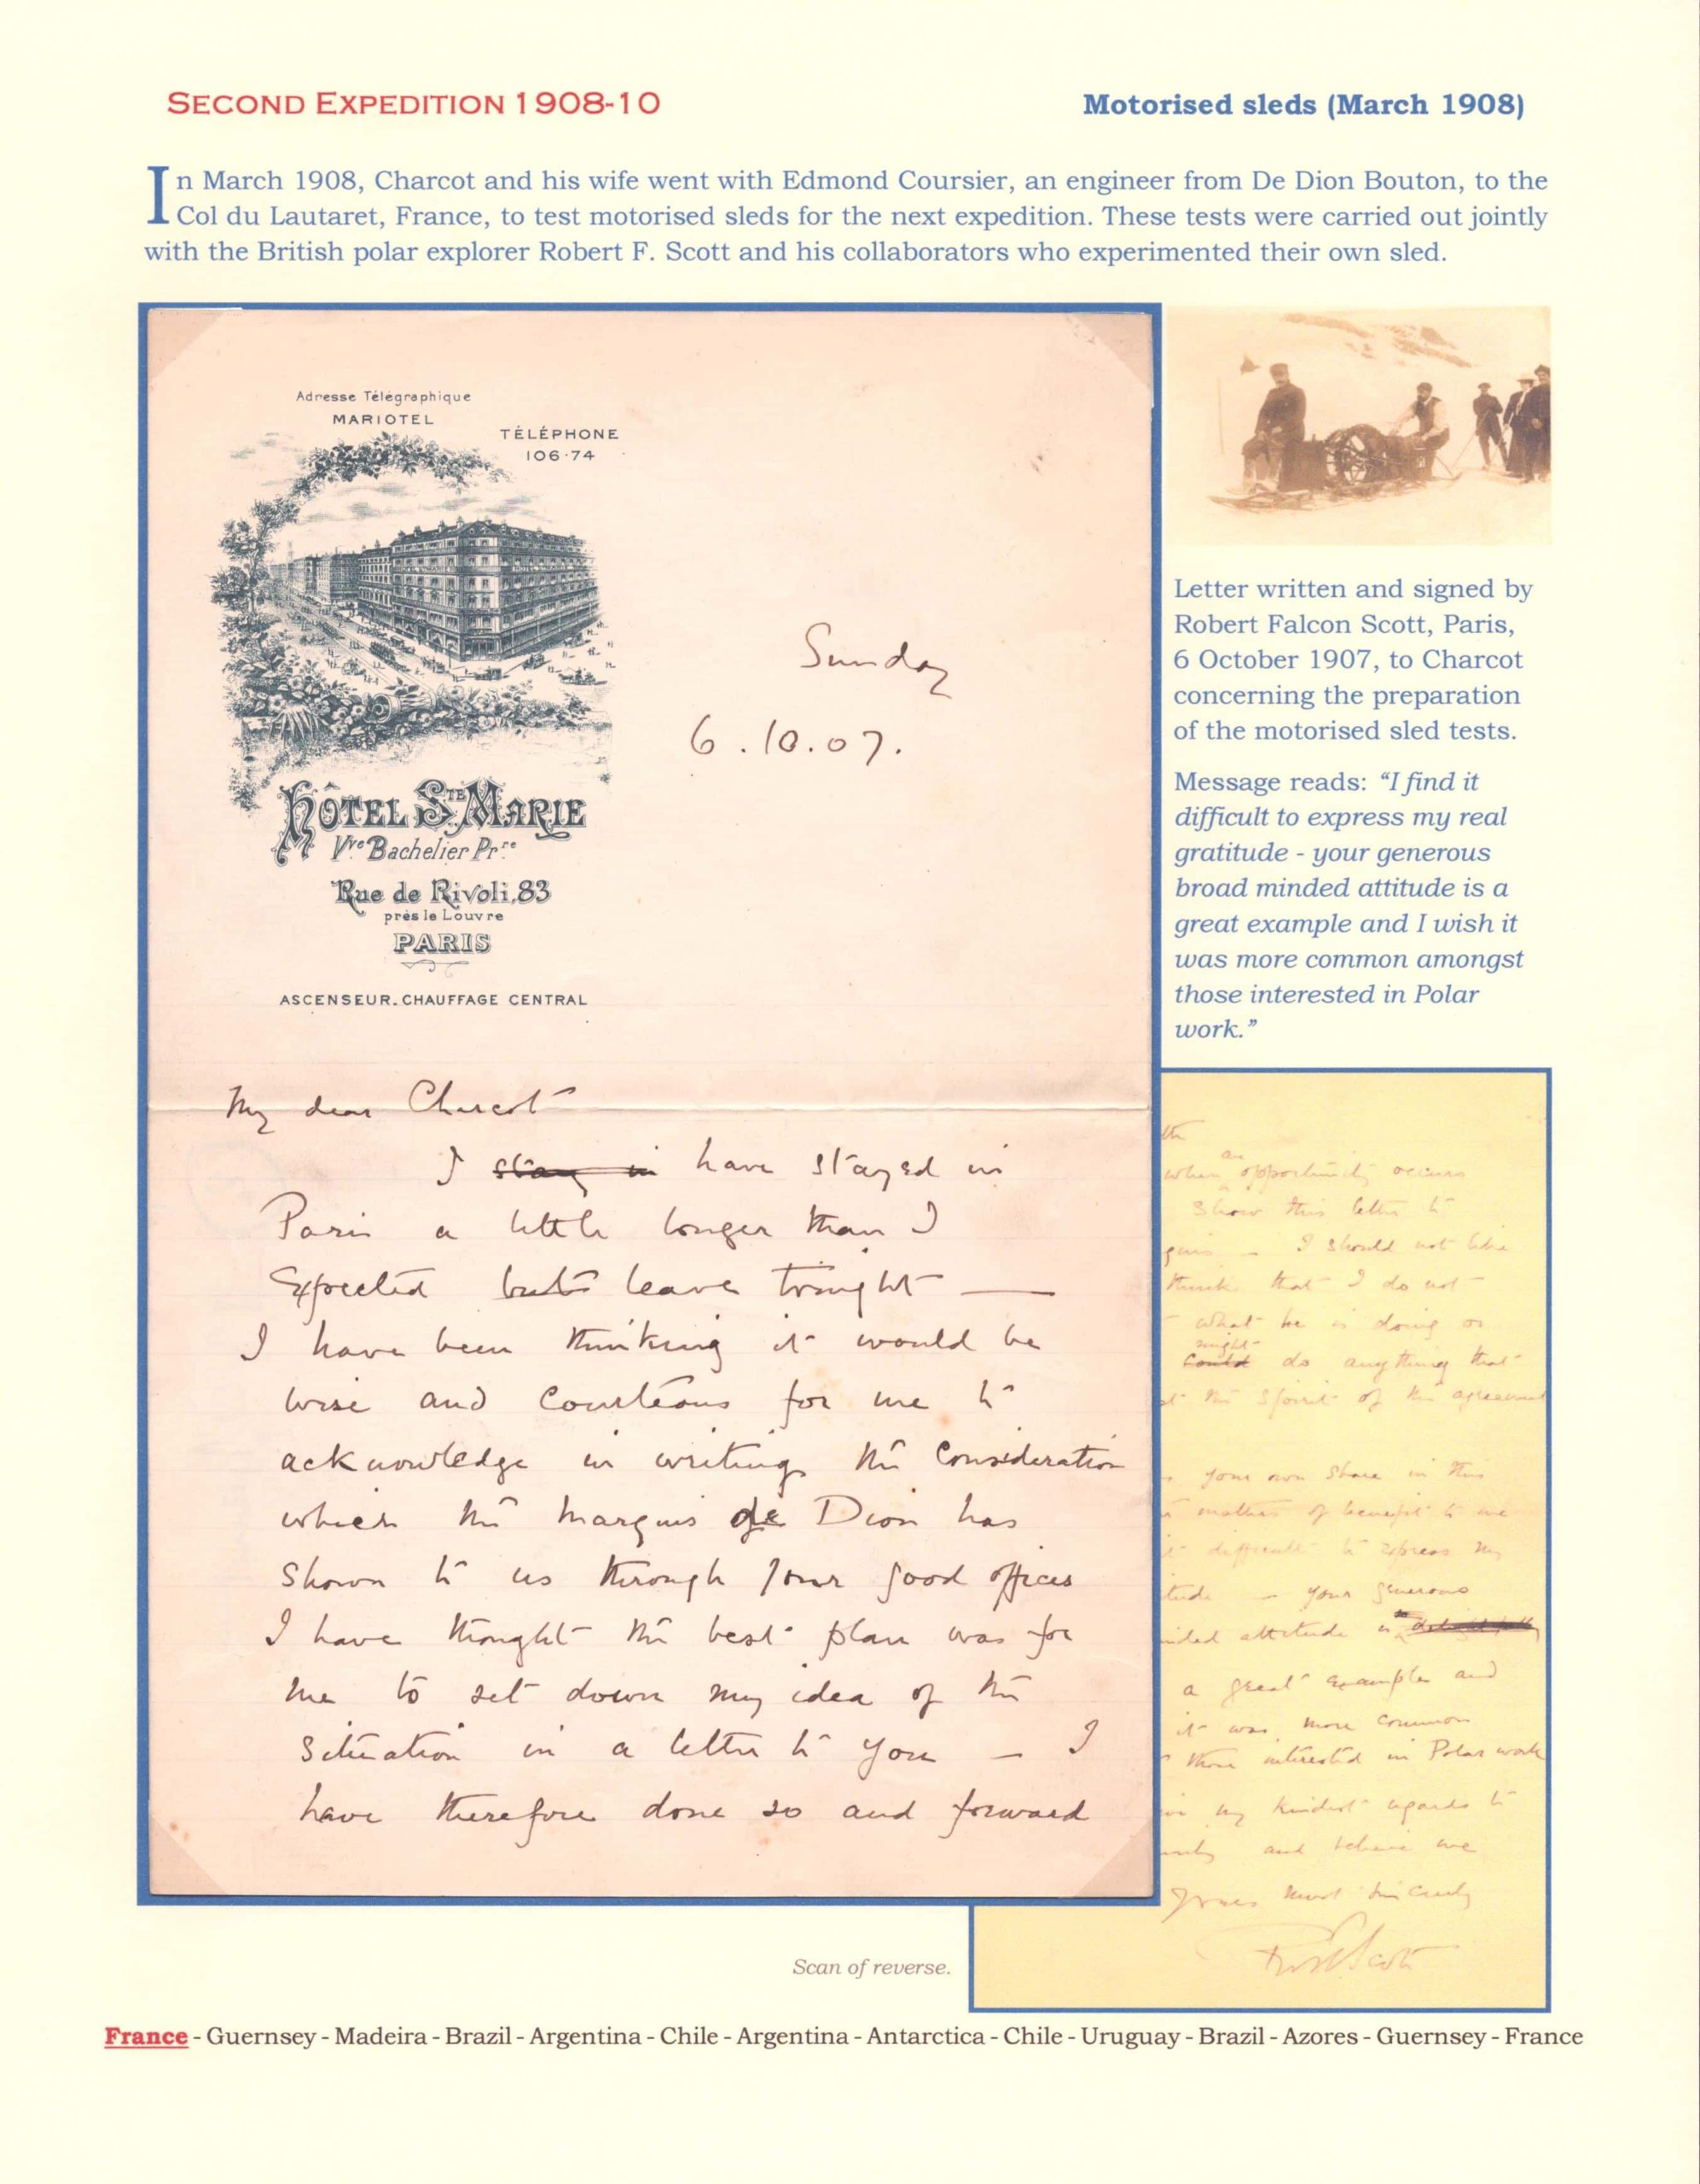 SECOND EXPEDITION 1908-10
Motorised sleds (March 1908)
In March 1908, Charcot and his wife went with Edmond Coursier, an engineer from De Dion Bouton, to the
Col du Lautaret, France, to test motorised sleds for the next expedition. These tests were carried out jointly
with the British polar explorer Robert F. Scott and his collaborators who experimented their own sled.
Adresse Télégraphique
MARIOTEL
TÉLÉPHONE
106·74
HÔTEL STE MARIE
Vve Bachelier Prre
Rue de Rivoli, 83
près le Louvre
PARIS
ASCENSEUR. CHAUFFAGE CENTRAL
Sunday
6.10.07.
My dear Charcot
I stay in have stayed in
Paris a little longer than I
expected but leave tonight —
I have been thinking it would be
wise and courteous for me to
acknowledge in writing the consideration
which the Marquis de Dion has
shown to us through your good offices
I have thought the best plan was for
me to set down my idea of the
situation in a letter to you — I
have therefore done so and forward
Letter written and signed by
Robert Falcon Scott, Paris,
6 October 1907, to Charcot
concerning the preparation
of the motorised sled tests.
Message reads: “I find it
difficult to express my real
gratitude - your generous
broad minded attitude is a
great example and I wish it
was more common amongst
those interested in Polar
work.”
when an opportunity occurs
show this letter to
— I should not like
think that I do not
what he is doing or
could might do anything that
the spirit of the agreement
your own share in this
matter of benefit to me
difficult to express my
— your generous
attitude is
a great example and
it was more common
those interested in Polar work
my kindest regards to
and believe me
Yours most sincerely
RFScott
Scan of reverse.
France - Guernsey - Madeira - Brazil - Argentina - Chile - Argentina - Antarctica - Chile - Uruguay - Brazil - Azores - Guernsey - France